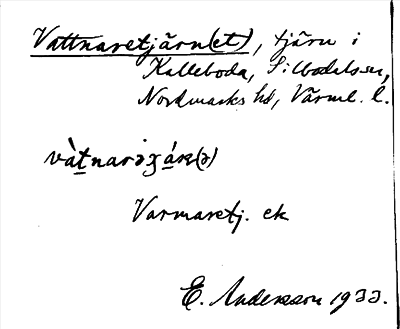 Vattnaretjärn(et), tjärn i
Kalleboda, Silbodals sn,
Nordmarks hd, Värml. l.
Varmaretj. ek
E. Andersson 1933.